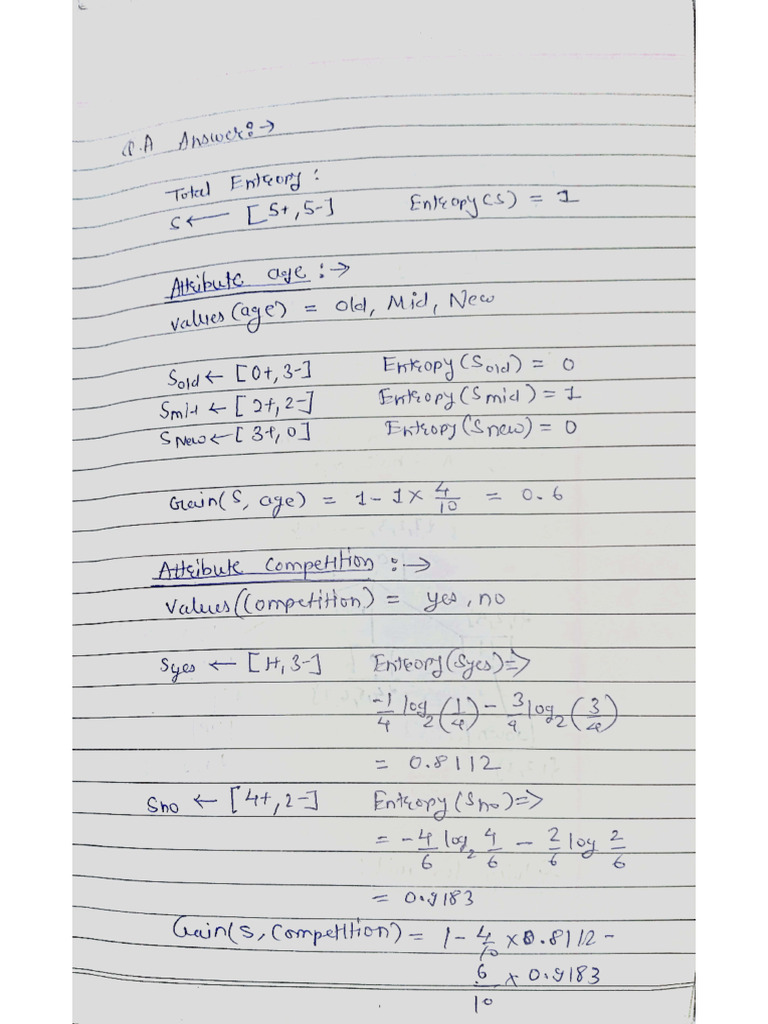 Q.A Answer:→
Total Entropy:
S ← [5+, 5-] Entropy(S) = 1
Attribute age :→
Values(age) = Old, Mid, New
Sold ← [0+, 3-] Entropy(Sold) = 0
Smid ← [2+, 2-] Entropy(Smid) = 1
SNew ← [3+, 0] Entropy(Snew) = 0
Gain(S, age) = 1 - 1 × 4/10 = 0.6
Attribute Competition :→
Values(Competition) = yes, no
Syes ← [1+, 3-] Entropy(Syes) ⇒
-1/4 log2 (1/4) - 3/4 log2 (3/4)
= 0.8112
Sno ← [4+, 2-] Entropy(Sno) ⇒
= -4/6 log2 4/6 - 2/6 log 2/6
= 0.9183
Gain(S, Competition) = 1 - 4/10 × 0.8112 -
6/10 × 0.9183